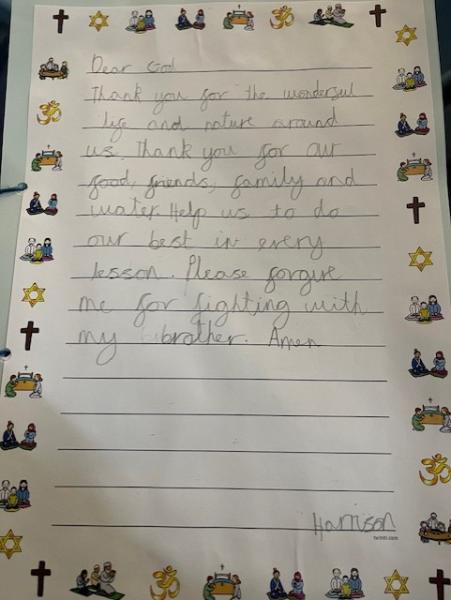 Dear God
Thank you for the wonderful
life and nature around
us. Thank you for our
food, friends, family and
water. Help us to do
our best in every
lesson. Please forgive
me for fighting with
my brother. Amen
Harrison
twinkl.com